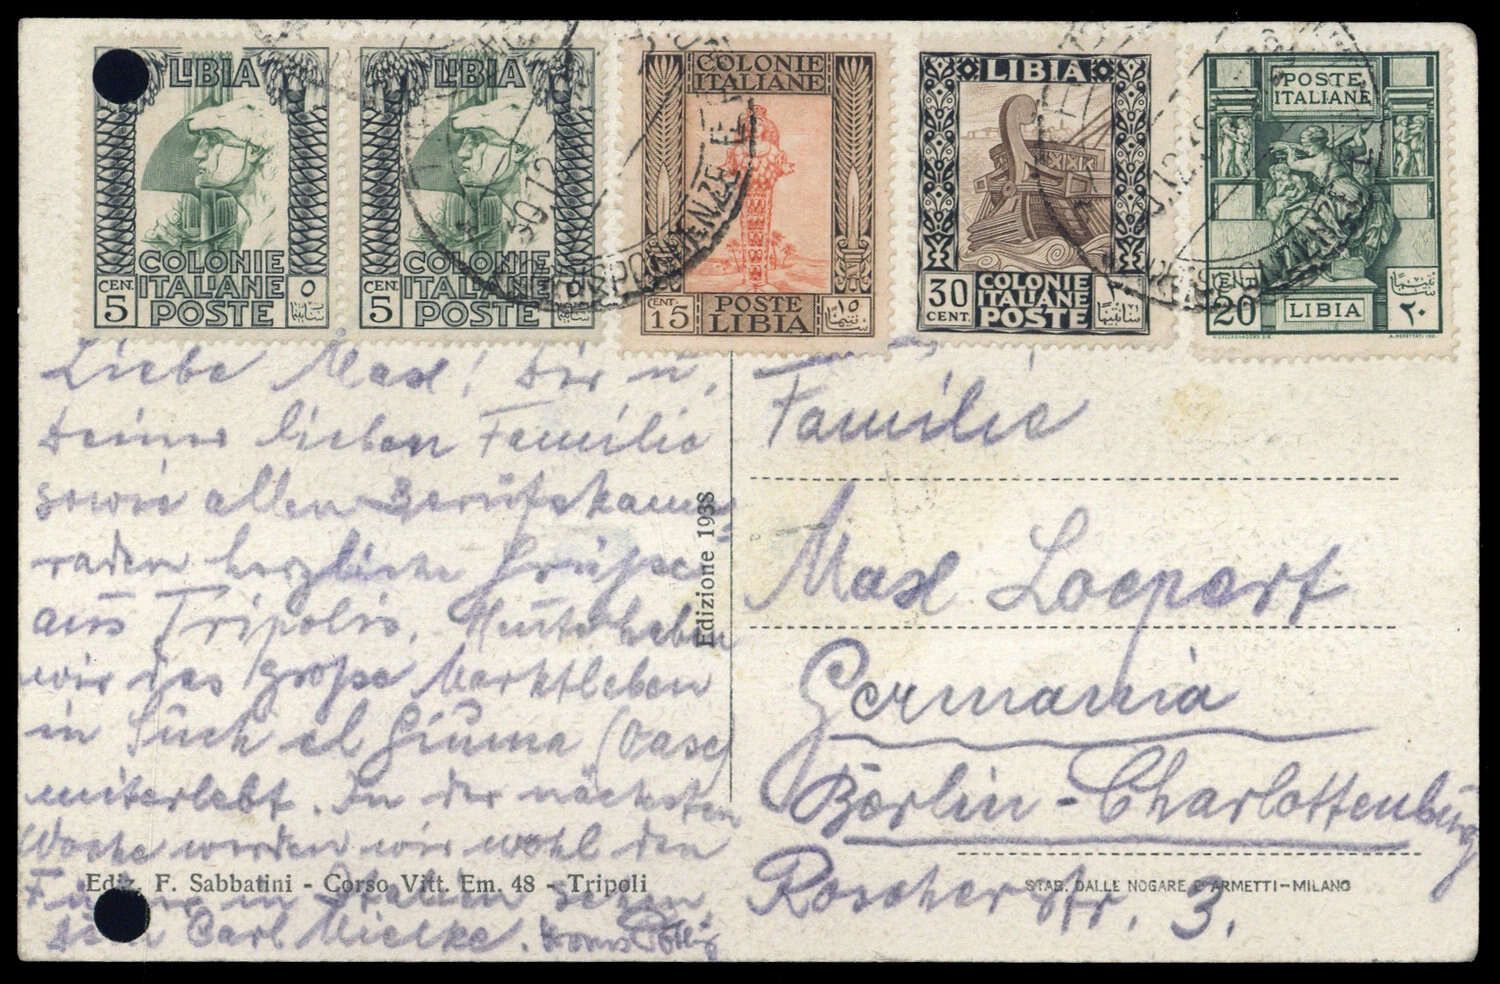 LIBIA
COLONIE
ITALIANE
POSTE
CENT. 5 ٥
LIBIA
COLONIE
ITALIANE
POSTE
CENT. 5 ٥
COLONIE
ITALIANE
CENT. 15 POSTE LIBIA ١٥
LIBIA
30 CENT. COLONIE ITALIANE POSTE
POSTE
ITALIANE
CENT. 20 LIBIA ٢٠
CORRISPONDENZE
Liebe Max! Dir u.
Deiner lieben Familie
sowie allen Berufskame
raden herzliche Grüße
aus Tripolis. Heute haben
wir das große Marktleben
in Suck el Giuma (Oase)
miterlebt. In der nächsten
Woche werden wir wohl den
Führer in Italien sehen
Dein Carl Mielke.
Familie
Max Loepert
Germania
Berlin-Charlottenburg
Roscherstr. 3.
Edizione 1938
Ediz. F. Sabbatini - Corso Vitt. Em. 48 - Tripoli
STAB. DALLE NOGARE E ARMETTI-MILANO